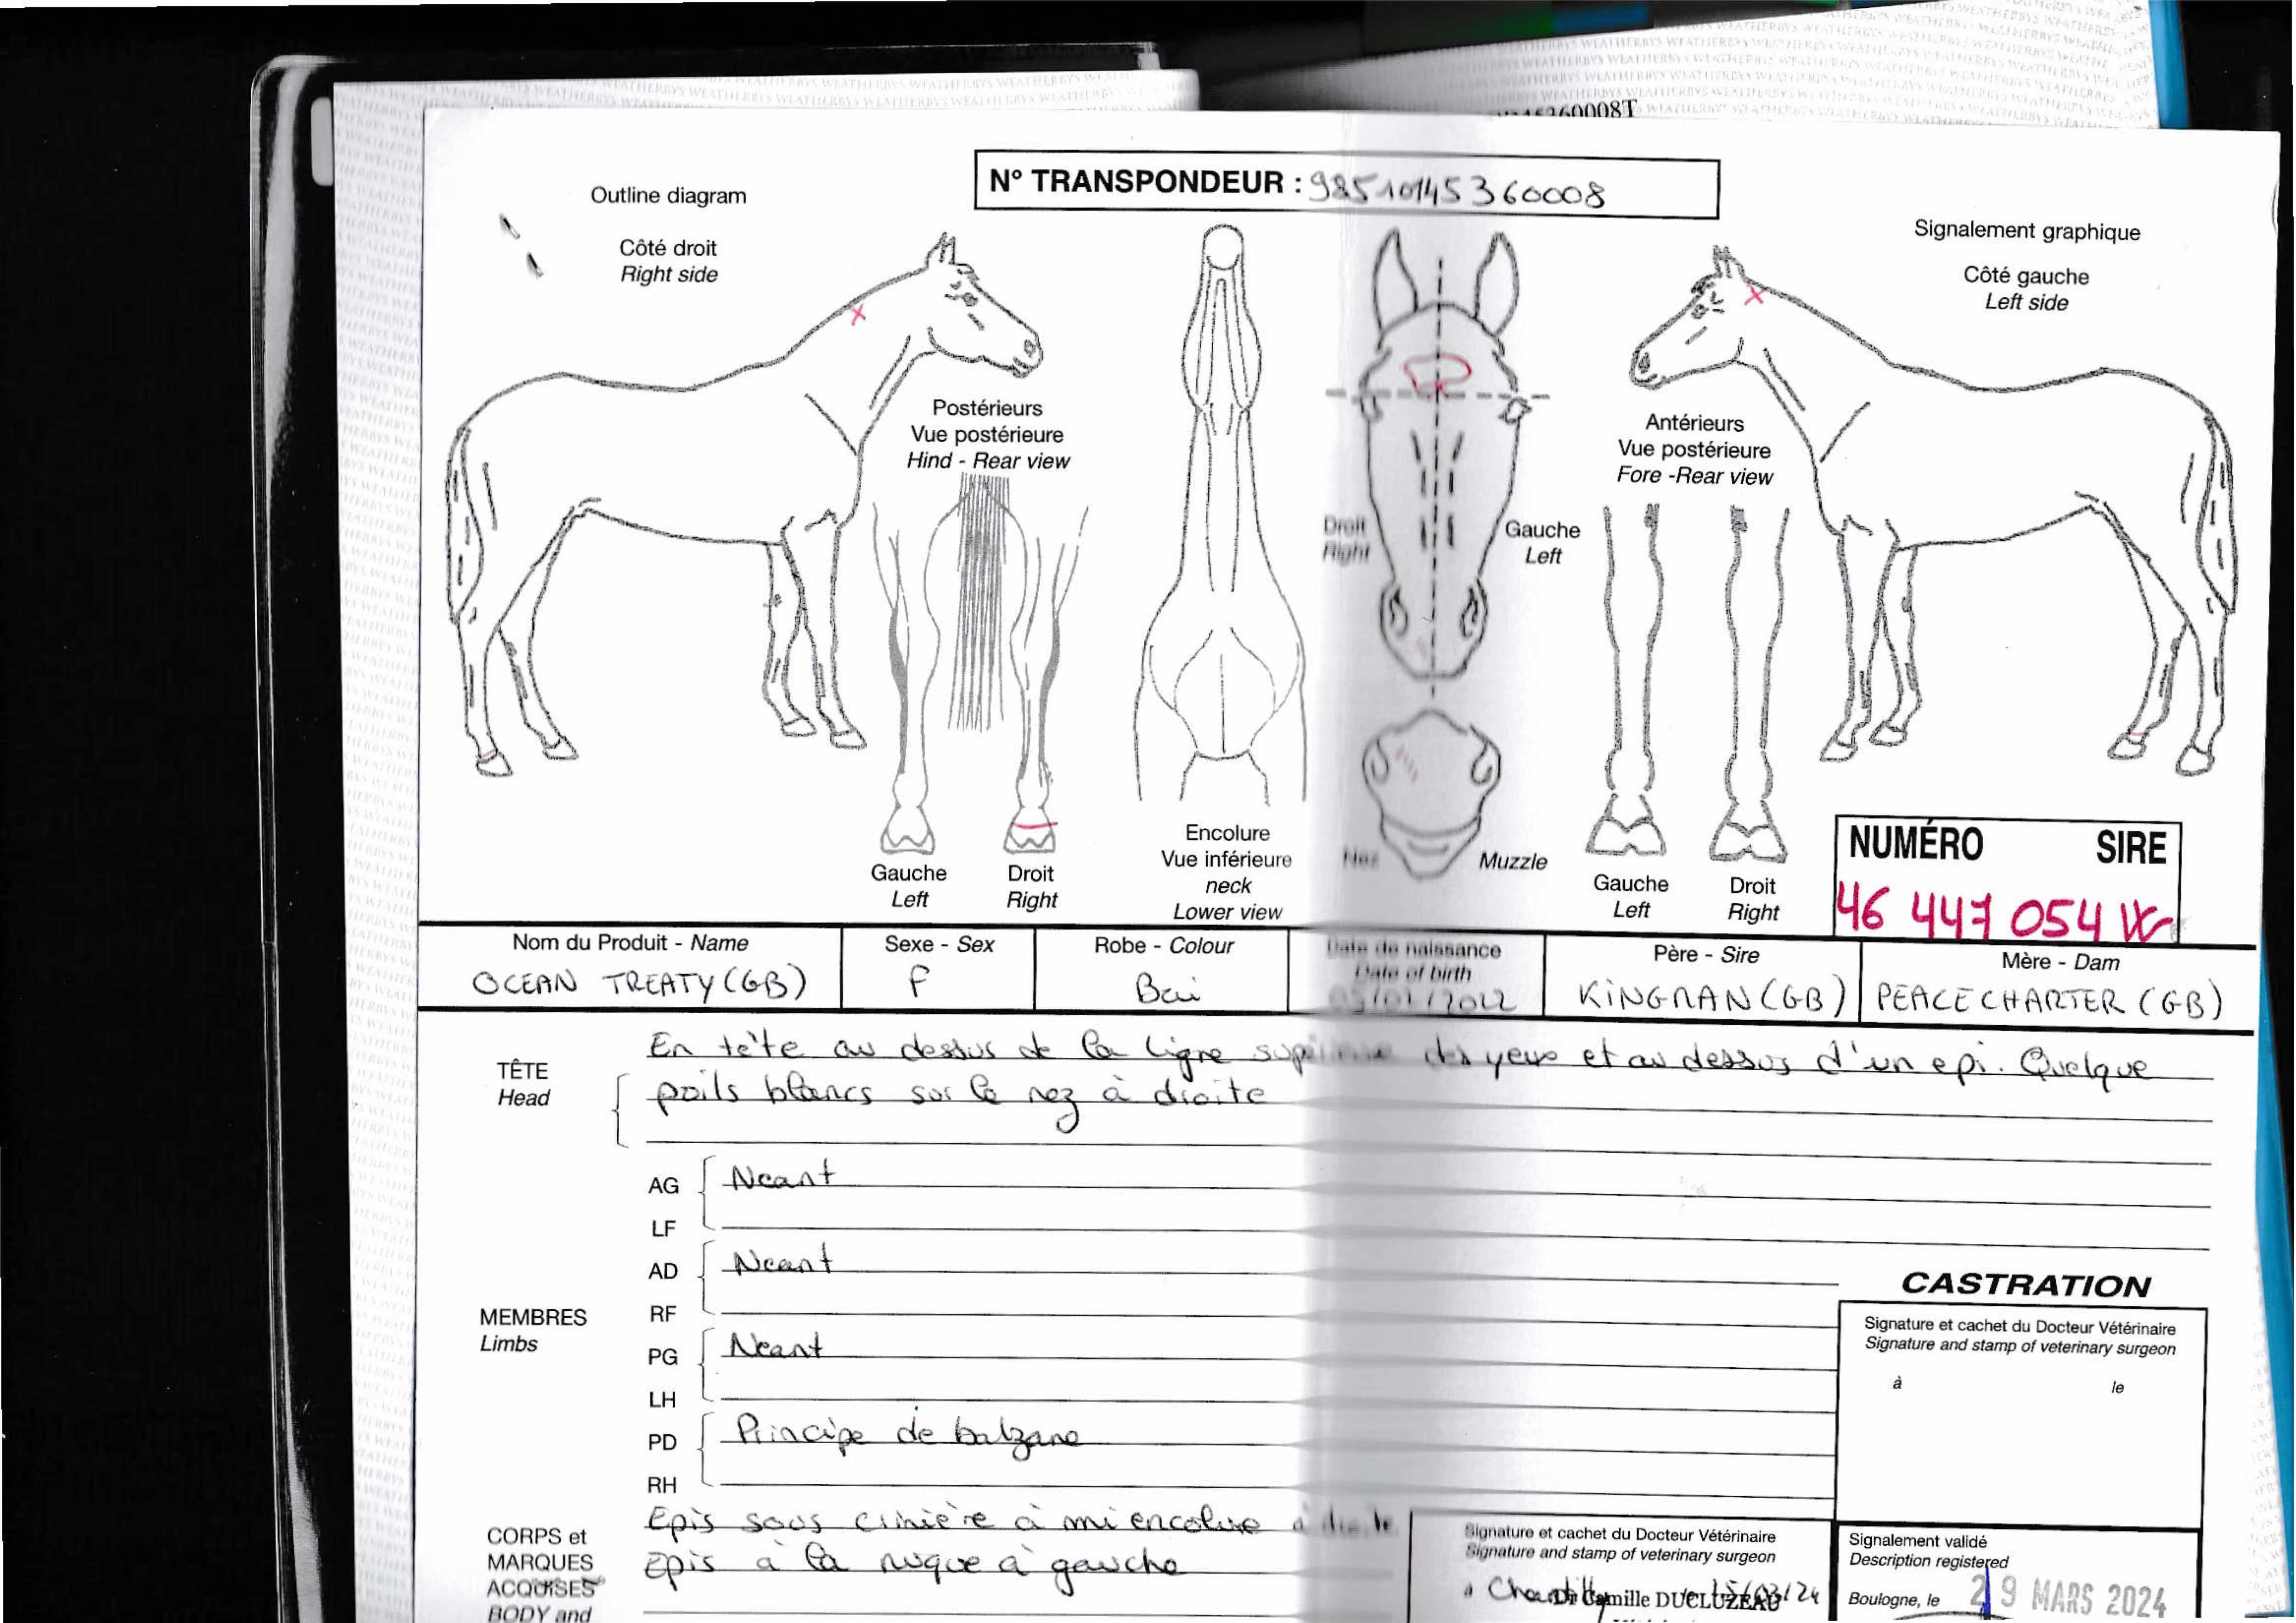 WEATHERBYS WEATHERBYS WEATHERBYS WEATHERBYS
60008T
N° TRANSPONDEUR : 985101145360008
Outline diagram
Côté droit
Right side
Signalement graphique
Côté gauche
Left side
Postérieurs
Vue postérieure
Hind - Rear view
Antérieurs
Vue postérieure
Fore -Rear view
Droit
Right
Gauche
Left
Gauche
Left
Droit
Right
Encolure
Vue inférieure
neck
Lower view
Nez
Muzzle
Gauche
Left
Droit
Right
NUMÉRO SIRE
46 447 054 W
Nom du Produit - Name
OCEAN TREATY (GB)
Sexe - Sex
F
Robe - Colour
Bai
Date de naissance
Date of birth
2022
Père - Sire
KINGMAN (GB)
Mère - Dam
PEACE CHARTER (GB)
TÊTE
Head
En tête au dessus de la ligne supérieure des yeux et au dessus d'un epi. Quelque
poils blancs sur le nez à droite
MEMBRES
Limbs
AG Neant
LF
AD Neant
RF
PG Neant
LH
PD Principe de balzane
RH
CORPS et
MARQUES
ACQUISES
BODY and
Epis sous crinière à mi encolure à droite
Epis à la nuque à gauche
CASTRATION
Signature et cachet du Docteur Vétérinaire
Signature and stamp of veterinary surgeon
à le
Signature et cachet du Docteur Vétérinaire
Signature and stamp of veterinary surgeon
à Chantilly 15/03/24
Dr Camille DUCLUZEAU
Signalement validé
Description registered
Boulogne, le 29 MARS 2024